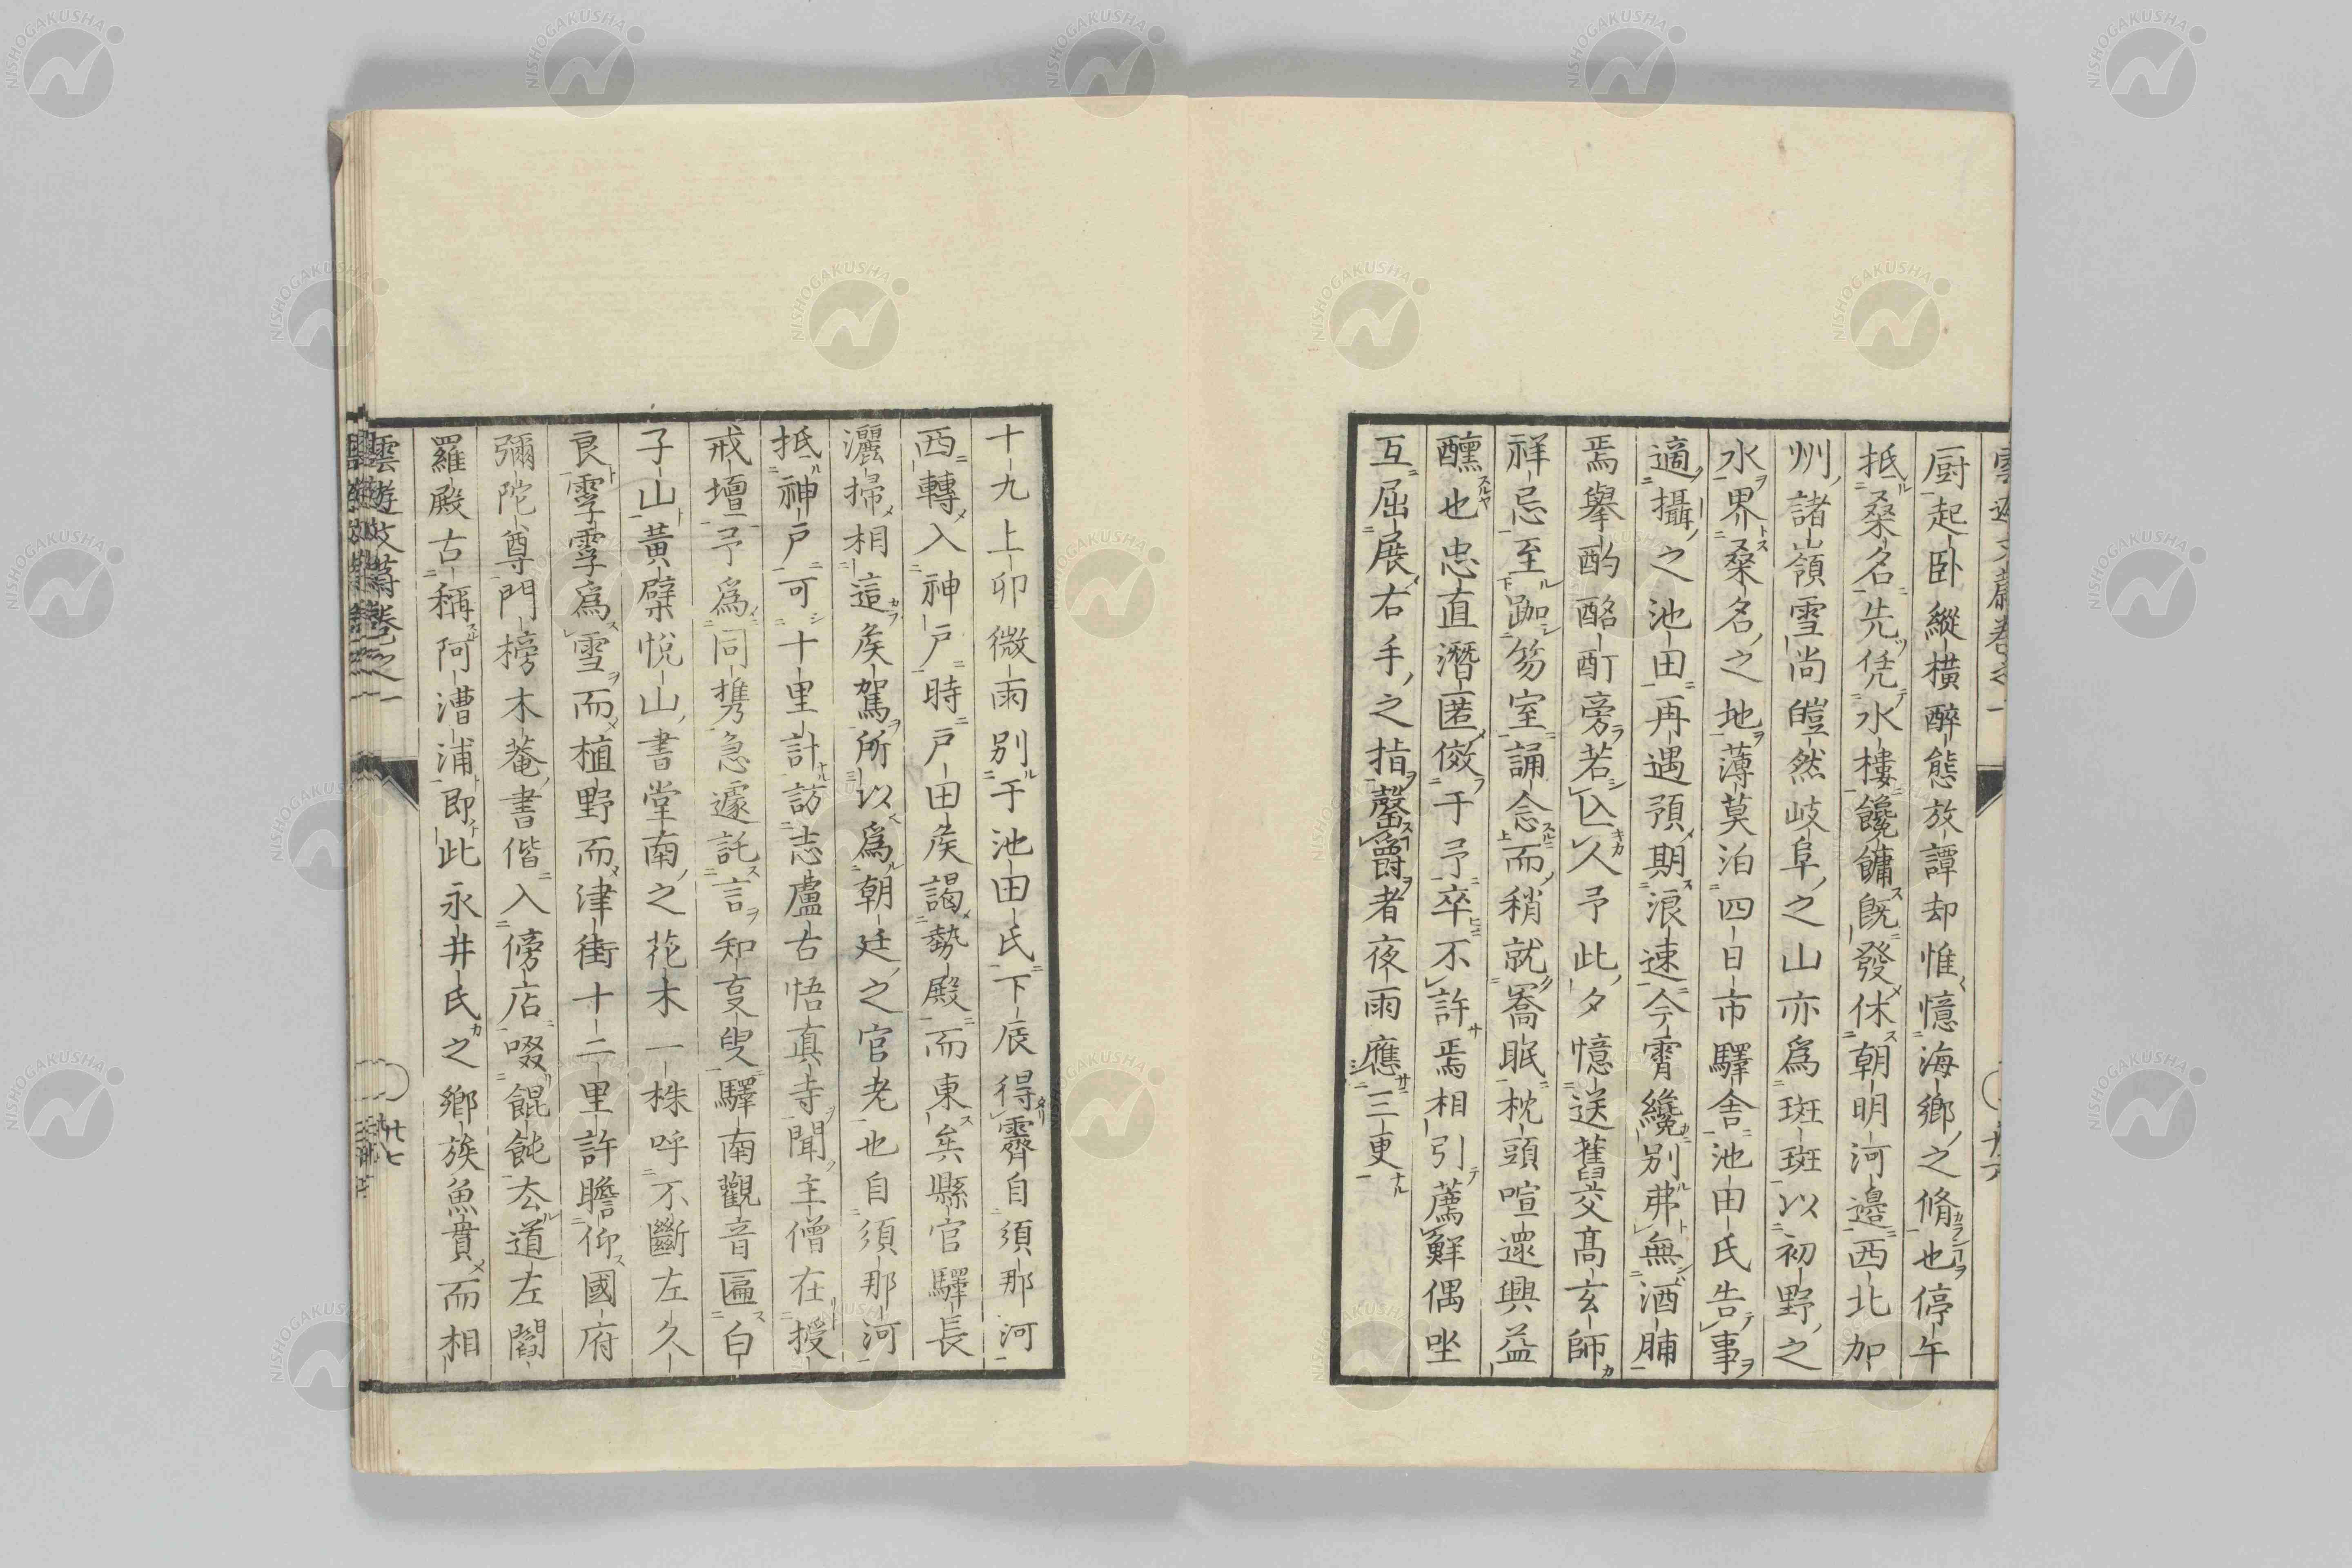 厨起臥縱橫醉態放譚却惟憶海鄉之脩也停午
抵桑名先凭水樓饞饍既發休朝明河邊西北加
州諸嶺雪尚皚然岐阜之山亦爲斑斑以初野之
水界桑名之地薄莫泊四日市驛舍池田氏告事
適攝之池田再遇預期浪速今霄纔別弗無酒脯
焉擧酌酩酊旁若亾人予此夕憶送舊交髙玄師
祥忌至跏笏室誦念而稍就罥眠枕頭喧還興益
醺也忠直潛匿傚于予卒不許焉相引薦鮮偶坐
互屈展右手之指罄爵者夜雨應三更
十九上卯微雨別于池田氏下辰得霽自須那河
西轉入神戶時戶田矦謁勢殿而東矣縣官驛長
灑掃相這矦駕所以爲朝廷之官老也自須那河
抵神戶可十里計訪志盧古悟真寺聞主僧在授
戒壇予爲同携急遽託言知叓叟驛南觀音匾白
子山黃檗悅山書堂南之花木一株呼不斷左久
良雩雩爲雪而植野而津街十二里許瞻仰國府
彌陀尊門榜木菴書偕入傍店啜餛飩厺道左閻
羅殿古稱阿漕浦即此永井氏之鄉族魚貫而相
雲遊文蔚卷之一
廿七